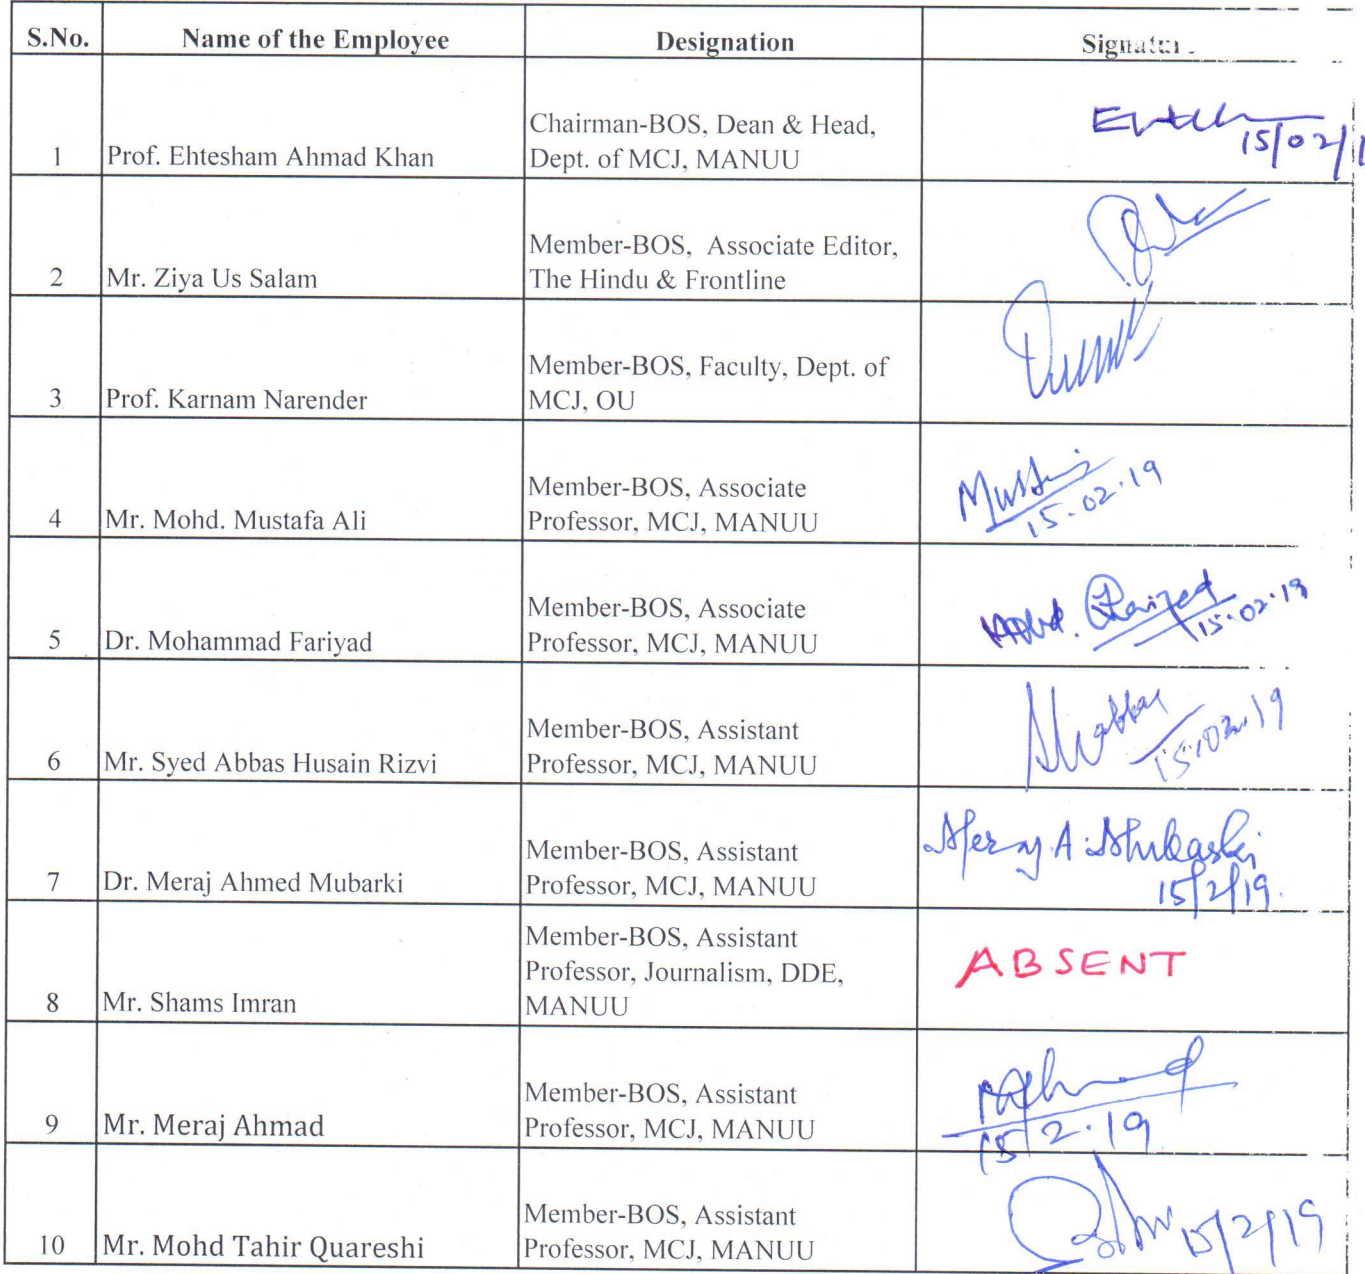 S.No. Name of the Employee Designation Signatur
1 Prof. Ehtesham Ahmad Khan Chairman-BOS, Dean & Head,
Dept. of MCJ, MANUU
15/02/1
2 Mr. Ziya Us Salam Member-BOS, Associate Editor,
The Hindu & Frontline
3 Prof. Karnam Narender Member-BOS, Faculty, Dept. of
MCJ, OU
4 Mr. Mohd. Mustafa Ali Member-BOS, Associate
Professor, MCJ, MANUU
15.02.19
5 Dr. Mohammad Fariyad Member-BOS, Associate
Professor, MCJ, MANUU
Mohd.
15.02.19
6 Mr. Syed Abbas Husain Rizvi Member-BOS, Assistant
Professor, MCJ, MANUU
15.02.19
7 Dr. Meraj Ahmed Mubarki Member-BOS, Assistant
Professor, MCJ, MANUU
Meraj A. Mubarki
15/2/19
8 Mr. Shams Imran Member-BOS, Assistant
Professor, Journalism, DDE,
MANUU
ABSENT
9 Mr. Meraj Ahmad Member-BOS, Assistant
Professor, MCJ, MANUU
15/2.19
10 Mr. Mohd Tahir Quareshi Member-BOS, Assistant
Professor, MCJ, MANUU
15/2/19